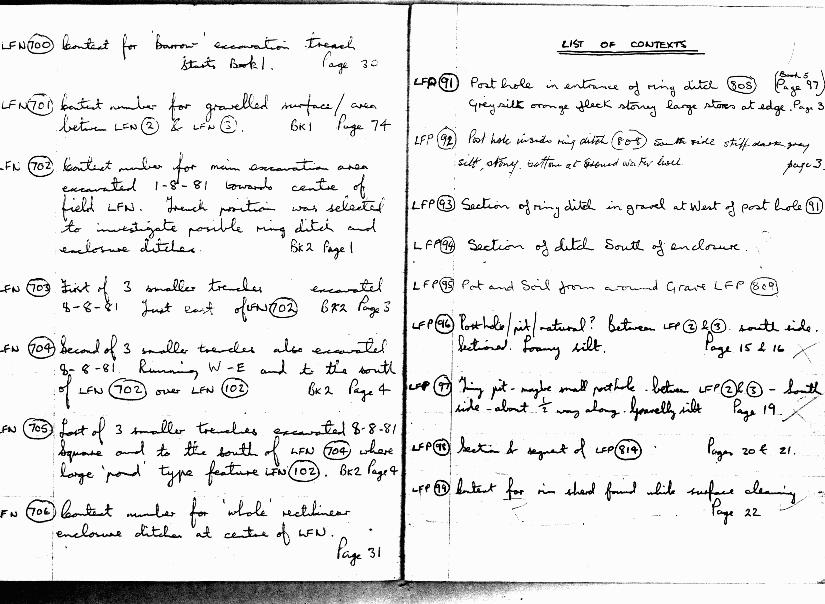 LFN 700 Context for 'barrow' excavation trench
Starts Book 1. Page 30
LFN 701 Context number for gravelled surface/area
between LFN 2 & LFN 3. BK1 Page 74
LFN 702 Context number for main excavation area
excavated 1-8-81 towards centre of
field LFN. Trench position was selected
to investigate possible ring ditch and
enclosure ditches. BK2 Page 1
LFN 703 First of 3 smaller trenches excavated
8-8-81 Just east of LFN 702 BK2 Page 3
LFN 704 Second of 3 smaller trenches also excavated
8-8-81. Running W-E and to the south
of LFN 702 over LFN 102 BK2 Page 4
LFN 705 Last of 3 smaller trenches excavated 8-8-81
Square and to the south of LFN 704 where
large 'pond' type feature LFN 102. BK2 Page 4
LFN 706 Context number for 'whole' rectilinear
enclosure ditches at centre of LFN.
Page 31
LIST OF CONTEXTS
LFP 91 Post hole in entrance of ring ditch 808 (Book 5 Page 97)
Grey silt orange fleck stoney large stones at edge. Page 3
LFP 92 Post hole inside ring ditch 808 South side stiff dark gray
silt, stony. bottom at water level page 3.
LFP 93 Section of ring ditch in gravel at West of post hole 91
LFP 94 Section of ditch South of enclosure.
LFP 95 Pot and Soil from around Grave LFP 809
LFP 96 Posthole/pit/natural? Between LFP 2 & 3. south side.
Sectioned. Loamy silt. Page 15 & 16
LFP 97 Tiny pit - maybe small posthole - between LFP 2 & 3 - South
side - about ½ way along. Gravelly silt Page 19.
LFP 98 Section & segment of LFP 814 Pages 20 & 21.
LFP 99 Context for rim sherd found while surface cleaning
Page 22